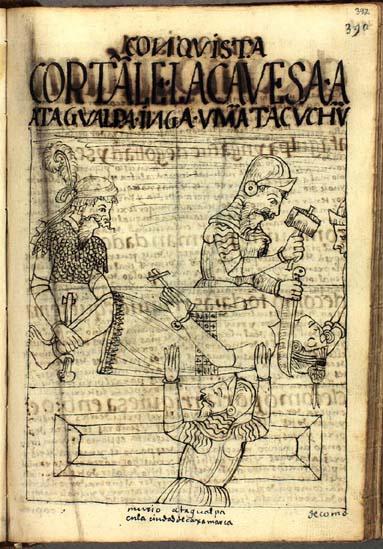 392
390
CONQVISTA
CORTÂLE·LACAVESA·A
ATAGVALPA·INGA·VMÂTACVCHŨ
murio atagualpa
en la ciudad de caxamarca
de como